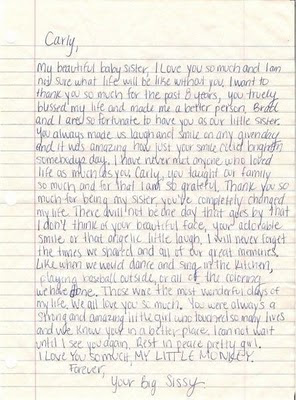 Carly,
My beautiful baby sister, I Love you so much and I am
not sure what life will be like without you. I want to
thank you so much for the past 8 years, you truely
blessed my life and made me a better person. Brad
and I are so fortunate to have you as our little sister.
You always made us laugh and smile on any given day
and it was amazing how just your smile could brighten
somebodys day. I have never met anyone who loved
life as much as you Carly, you taught our family
so much and for that I am so grateful. Thank you so
much for being my sister, you've completely changed
my life. There will not be one day that goes by that
I don't think of your beautiful face, your adorable
smile or that angelic little laugh. I will never forget
the times we shared and all of our great memories.
Like when we would dance and sing in the kitchen,
playing baseball outside, or all of the coloring
we have done. Those were the most wonderful days of
my life. We all love you so much. You were always a
strong and amazing little girl who touched so many lives
and we know your in a better place. I can not wait
until I see you again. Rest in peace pretty girl.
I Love You so much, MY LITTLE MONKEY.
Forever,
Your Big Sissy